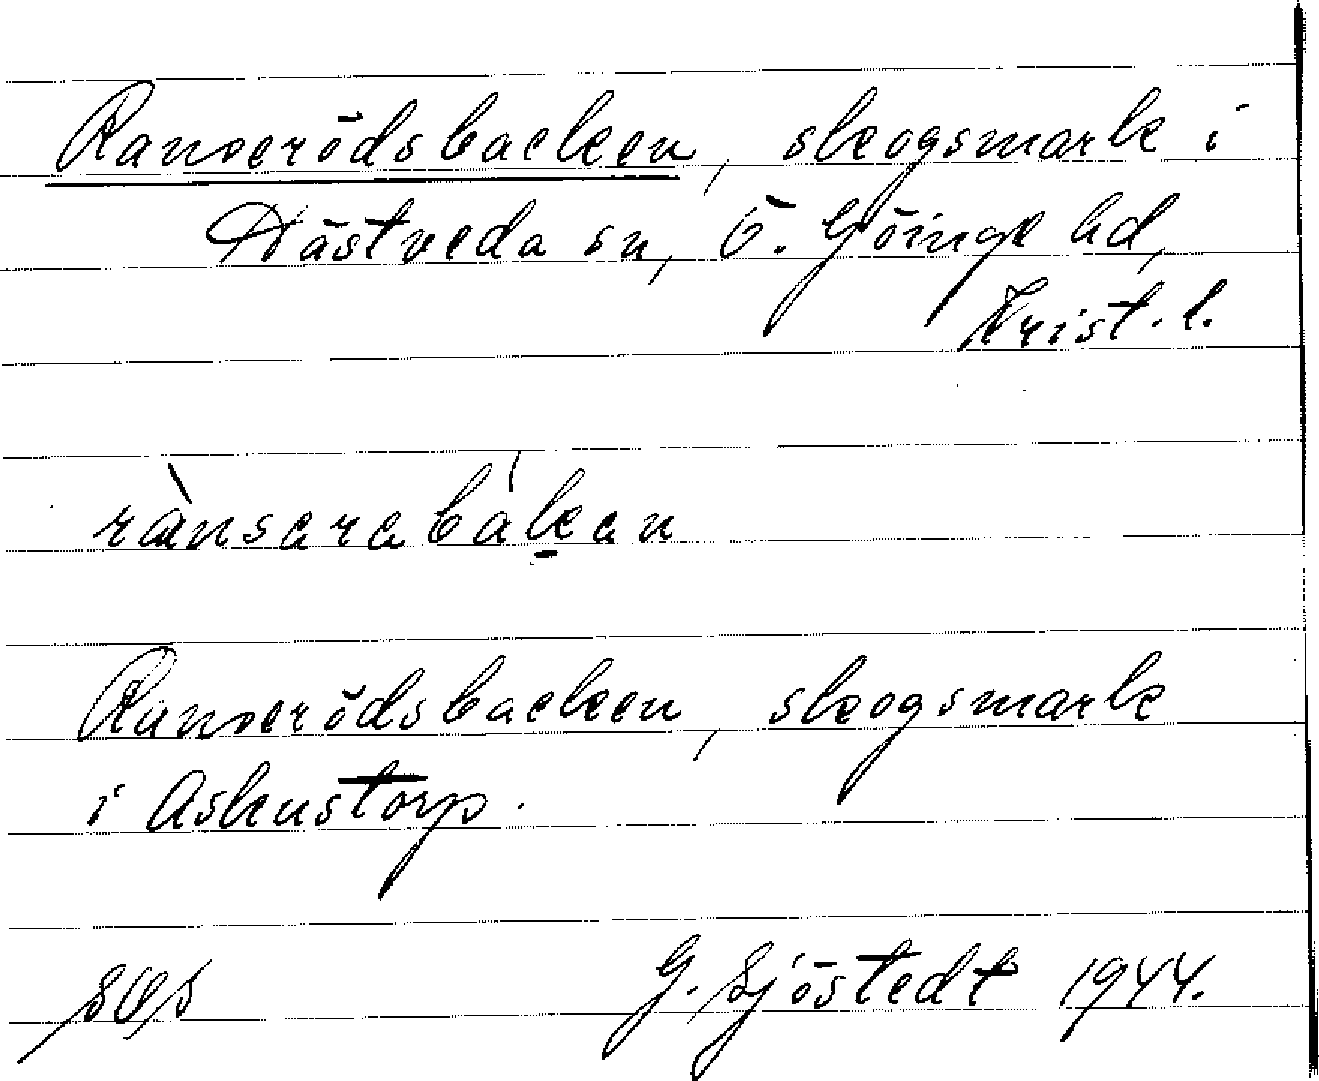 Ranserödsbacken, skogsmark i
Hästveda sn, Ö. Göinge hd,
Krist. l.
rànserabáḵen
Ranserödsbacken, skogsmark
i Askustorp.
G. Sjöstedt 1944.